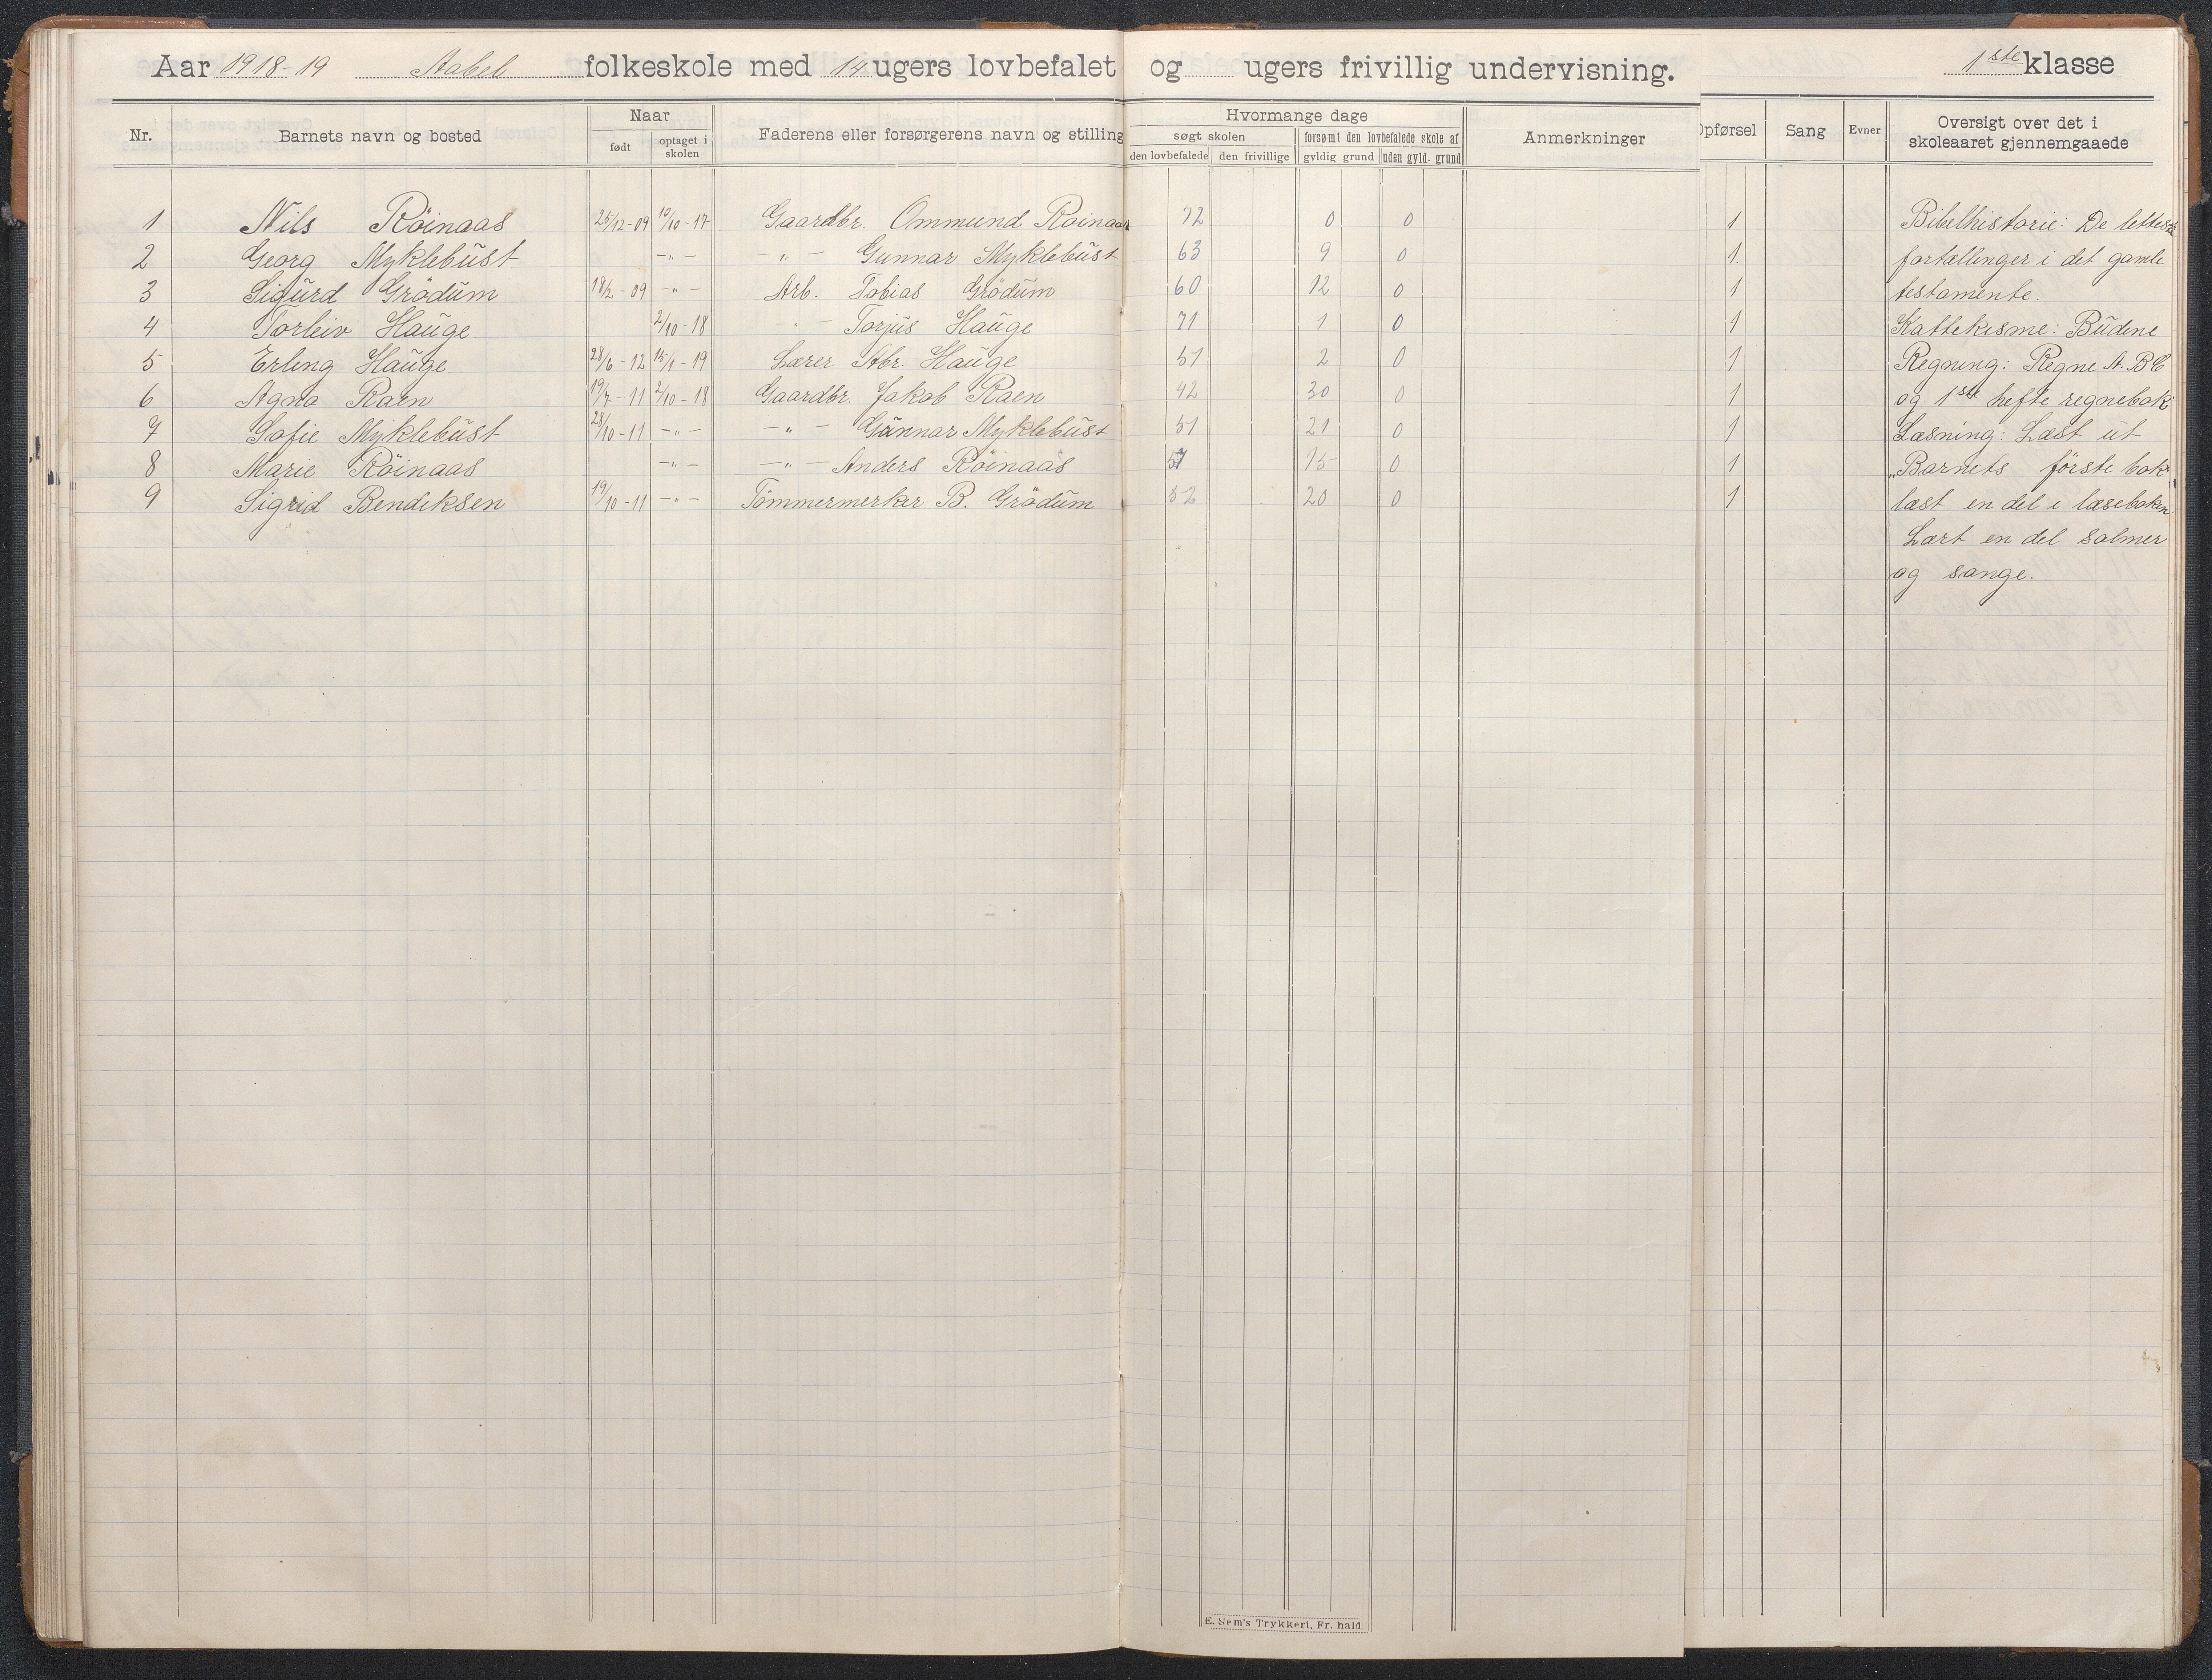 Aar 1918-19 Aabel folkeskole med 14 ugers lovbefalet og ugers frivillig undervisning. 1ste klasse
Nr. Barnets navn og bosted Naar født optaget i skolen Faderens eller forsørgerens navn og stilling Hvormange dage søgt skolen den lovbefalede den frivillige forsømt den lovbefalede skole af gyldig grund uden gyld. grund Anmerkninger Opførsel Sang Evner Oversigt over det i skoleaaret gjennemgaaede
1 Nils Röinaas 25/12-09 10/10-17 Gaardbr. Ommund Roinaas 72 0 0 1 Bibelhistorie: De letteste
2 Georg Myklebust -"- -"- Gunnar Myklebust 63 9 0 1. fortællinger i det gamle
3 Sigurd Grödum 18/2-09 -"- Arb. Tobias Grödum 60 12 0 1 testamente.
4 Torleiv Hauge 2/10-18 -"- Torjus Hauge 71 1 0 1 Kattekisme: Budene
5 Erling Hauge 28/6-12 15/1-19 Lærer Abr. Hauge 51 2 0 1 Regning: Regne A.B.C
6 Agna Raen 19/7-11 2/10-18 Gaardbr. Jakob Raen 42 30 0 1 og 1ste hefte regnebok
7 Sofie Myklebust 28/10-11 -"- -"- Gunnar Myklebust 51 21 0 1 Læsning: Læst ut
8 Marie Röinaas -"- -"- Anders Röinaas 57 15 0 1 "Barnets förste bok
9 Sigrid Bendiksen 19/10-11 -"- Tömmermerker B. Grödum 52 20 0 1 læst en del i læseboken.
Lært en del salmer
og sange.
E. Sem's Trykkeri, Fr. hald